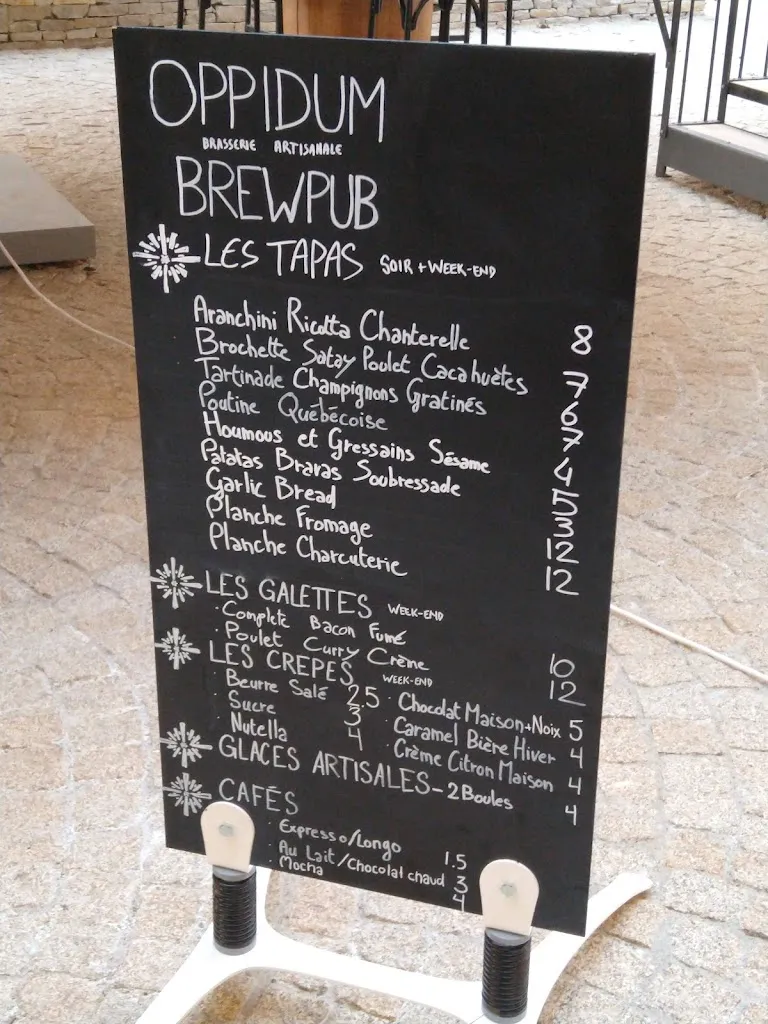 OPPIDUM
BRASSERIE ARTISANALE
BREWPUB
LES TAPAS SOIR + WEEK-END
Aranchini Ricotta Chanterelle 8
Brochette Satay Poulet Cacahuètes 7
Tartinade Champignons Gratinés 6
Poutine Québécoise 7
Houmous et Gressains Sésame 4
Patatas Bravas Soubressade 5
Garlic Bread 3
Planche Fromage 12
Planche Charcuterie 12
LES GALETTES WEEK-END
· Complete Bacon Fumé 10
· Poulet Curry Crème 12
LES CREPES WEEK-END
· Beurre Salé 2.5 · Chocolat Maison+Noix 5
· Sucre 3 · Caramel Bière Hiver 4
· Nutella 4 · Crème Citron Maison 4
GLACES ARTISALES - 2 Boules 4
CAFÉS
· Expresso/Longo 1.5
· Au Lait/Chocolat chaud 3
· Mocha 4